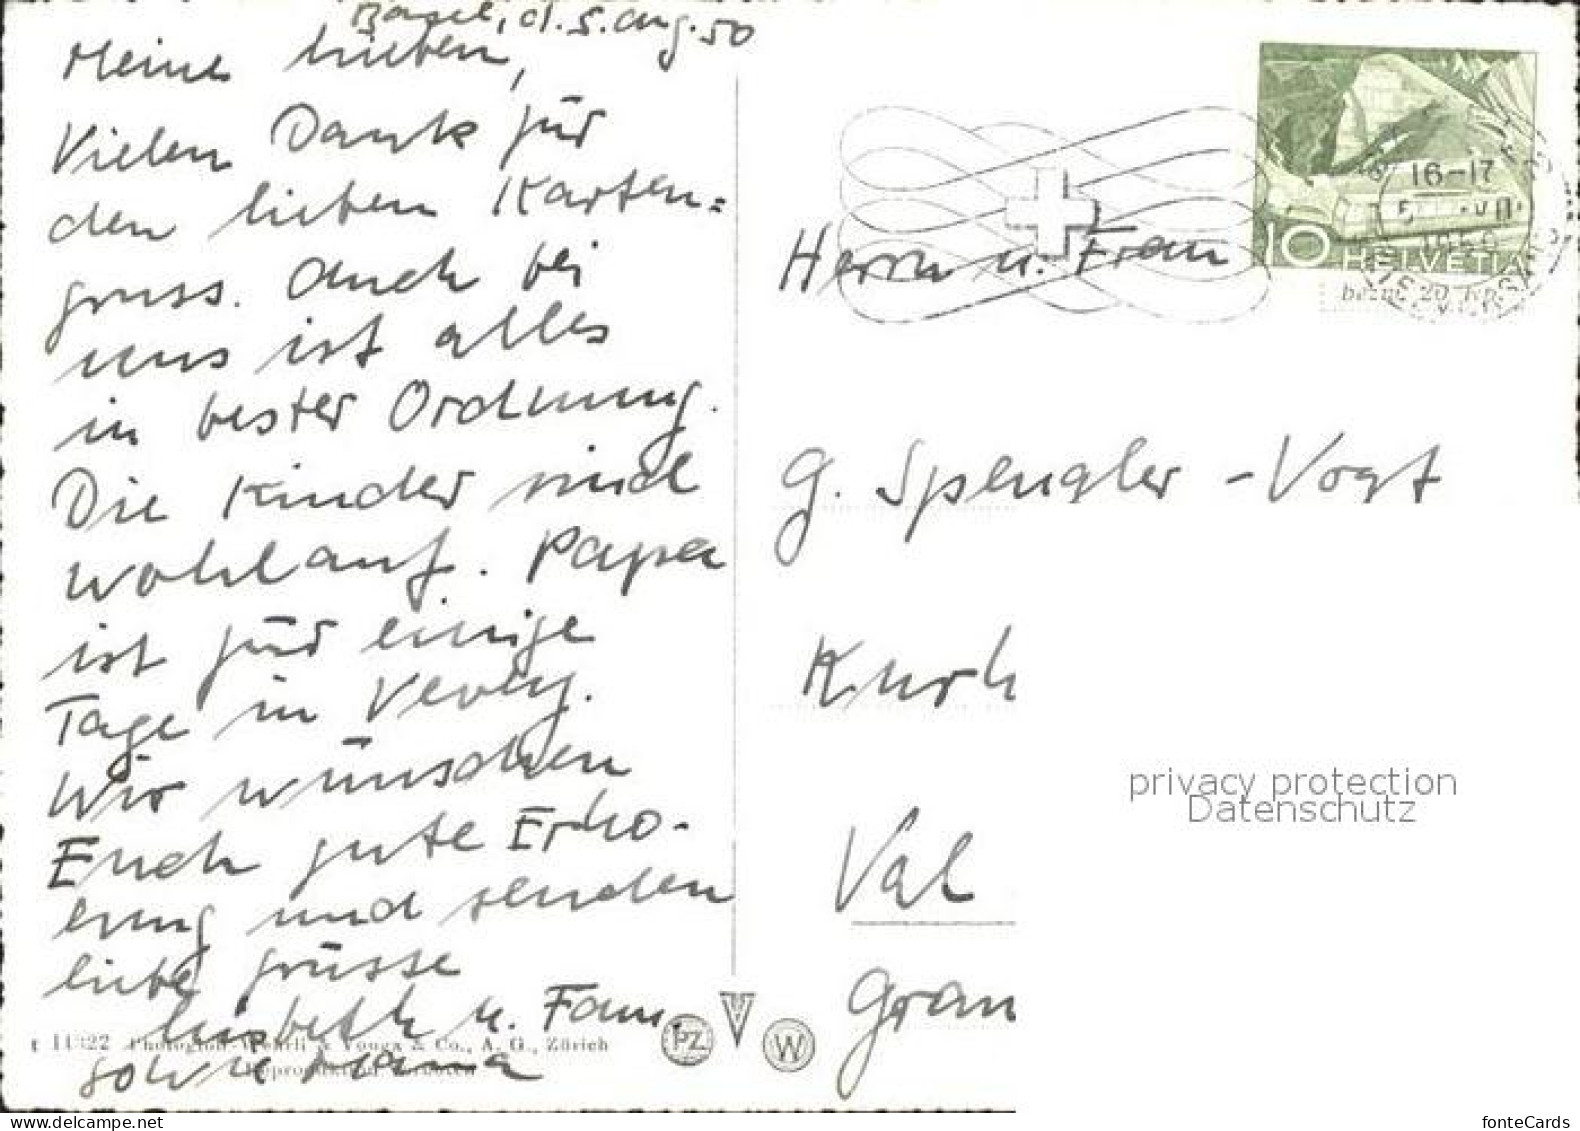 Basel, d. 5. Aug. 50
Meine lieben,
Vielen Dank für
den lieben Karten=
gruss. Auch bei
uns ist alles
in bester Ordnung.
Die Kinder sind
wohlauf. Papa
ist für einige
Tage in Vevey.
Wir wünschen
Euch gute Erho-
lung und senden
liebe Grüsse
Lisbeth u. Fam.
sowie Mama
t 11322 Photoglob-Wehrli & Vouga & Co., A. G., Zürich
Reproduktion verboten
PZ
W
16-17
1950
10 HELVETIA
Herrn u. Frau
G. Spengler-Vogt
Kurh
Val
Grau
privacy protection
Datenschutz
www.delcampe.net
fonteCards